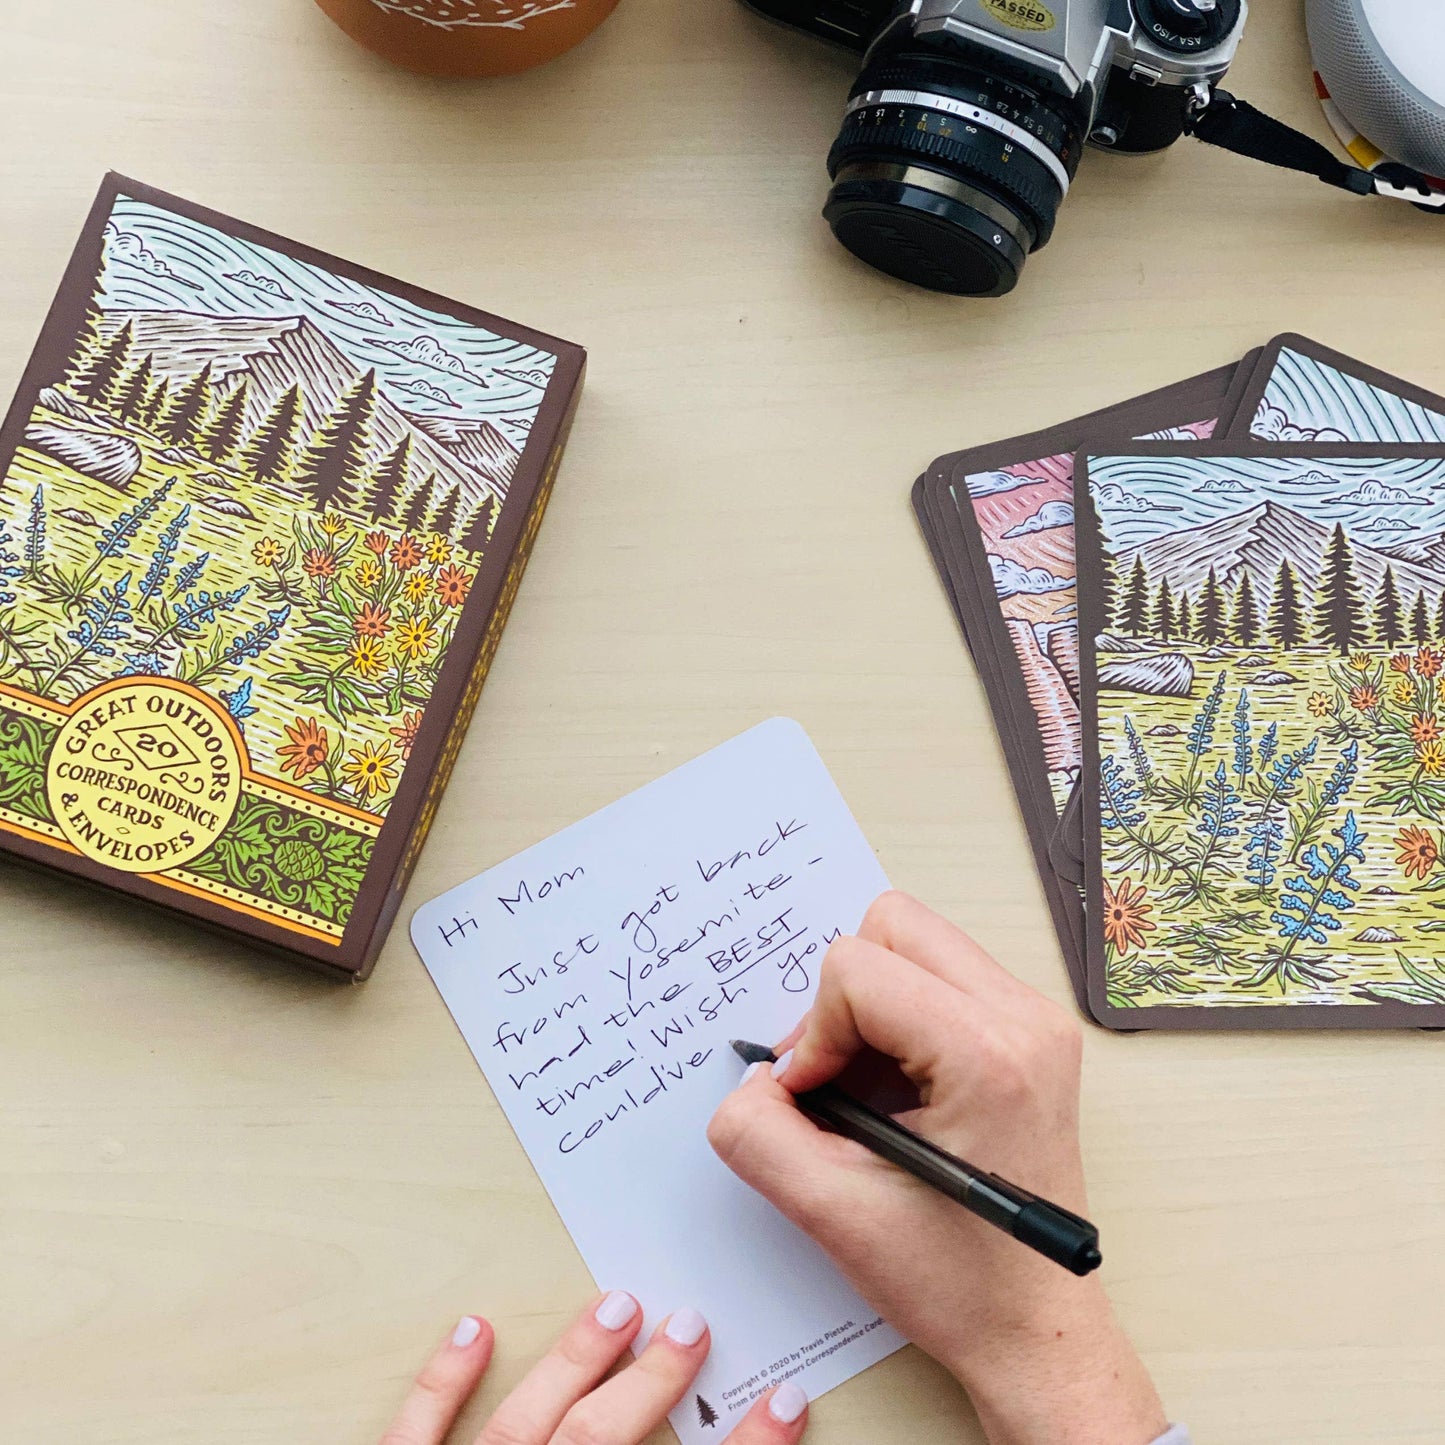 PASSED
ASA/ISO
NIKON
GREAT OUTDOORS
20
CORRESPONDENCE
CARDS
& ENVELOPES
Hi Mom
Just got back
from Yosemite -
had the BEST
time! Wish you
could've
Copyright © 2020 by Travis Pietsch.
From Great Outdoors Correspondence Cards